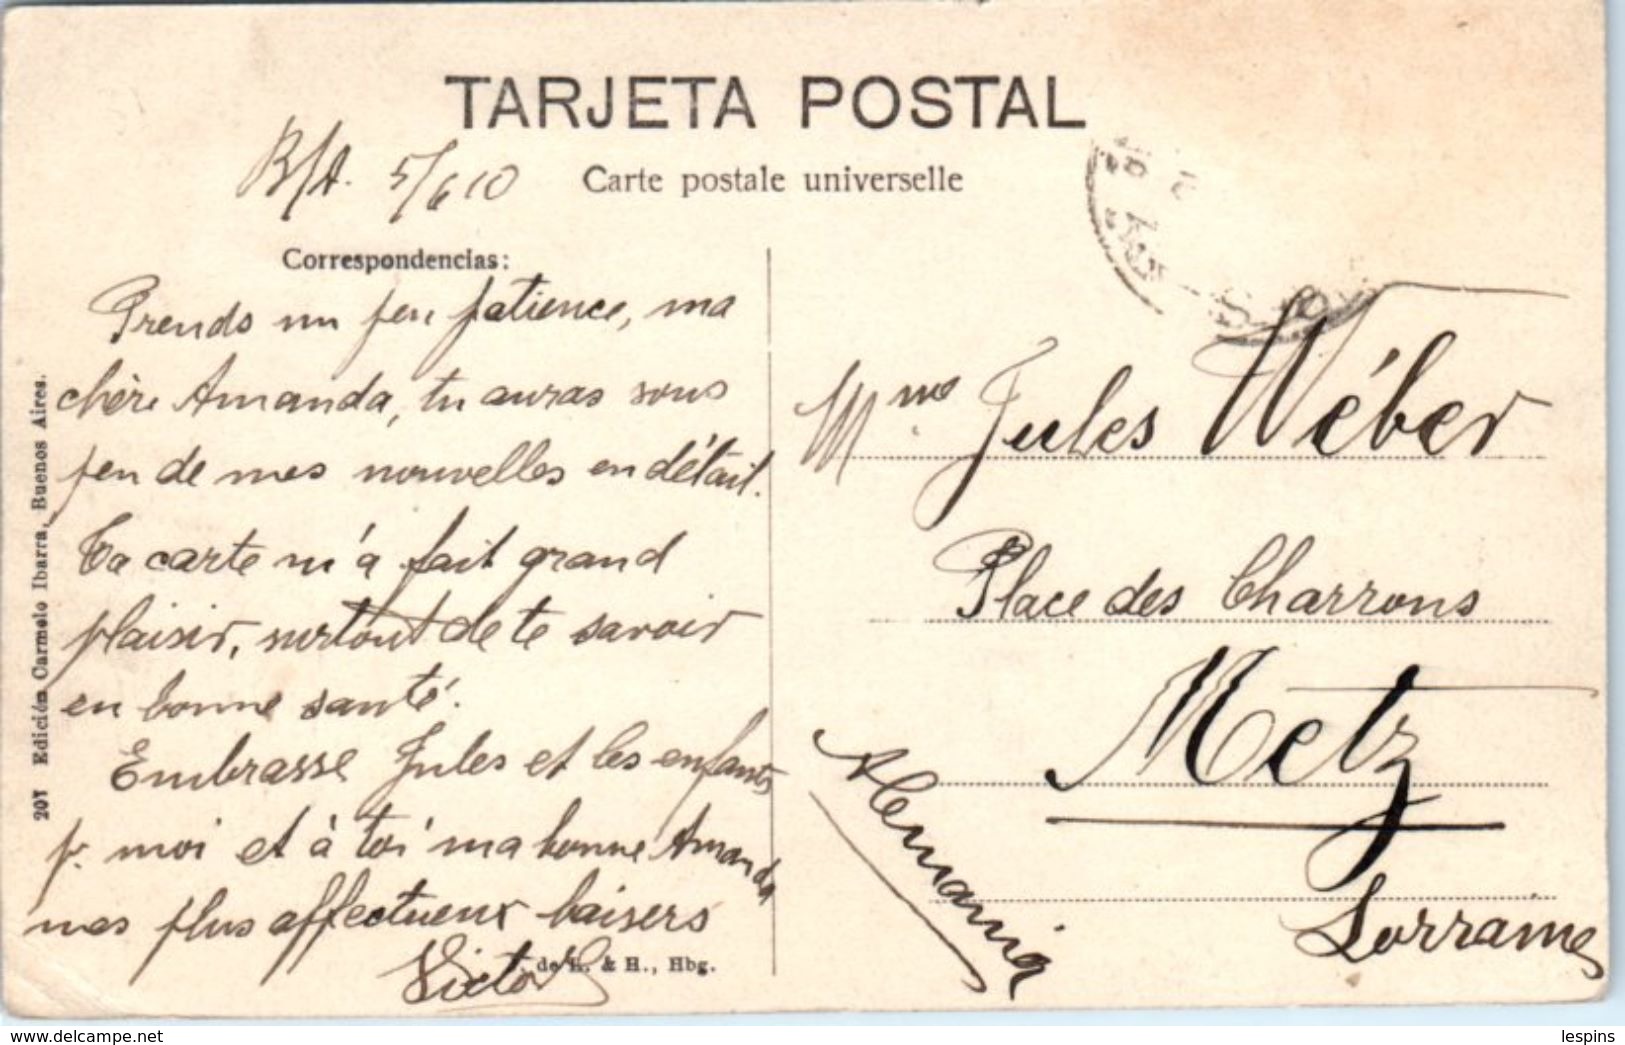 TARJETA POSTAL
B/A. 5/6 10
Carte postale universelle
Correspondencias:
Prends un peu patience, ma
chère Amanda, tu auras sous
peu de mes nouvelles en détail.
Ta carte m'a fait grand
plaisir, surtout de te savoir
en bonne santé.
Embrasse Jules et les enfants
p. moi et à toi ma bonne Amanda
mes plus affectueux baisers
Victor
de L. & H., Hbg.
Mme Jules Wéber
Place des Charrons
Metz
Lorraine
Alemania
207 Edición Carmelo Ibarra, Buenos Aires.
lespins